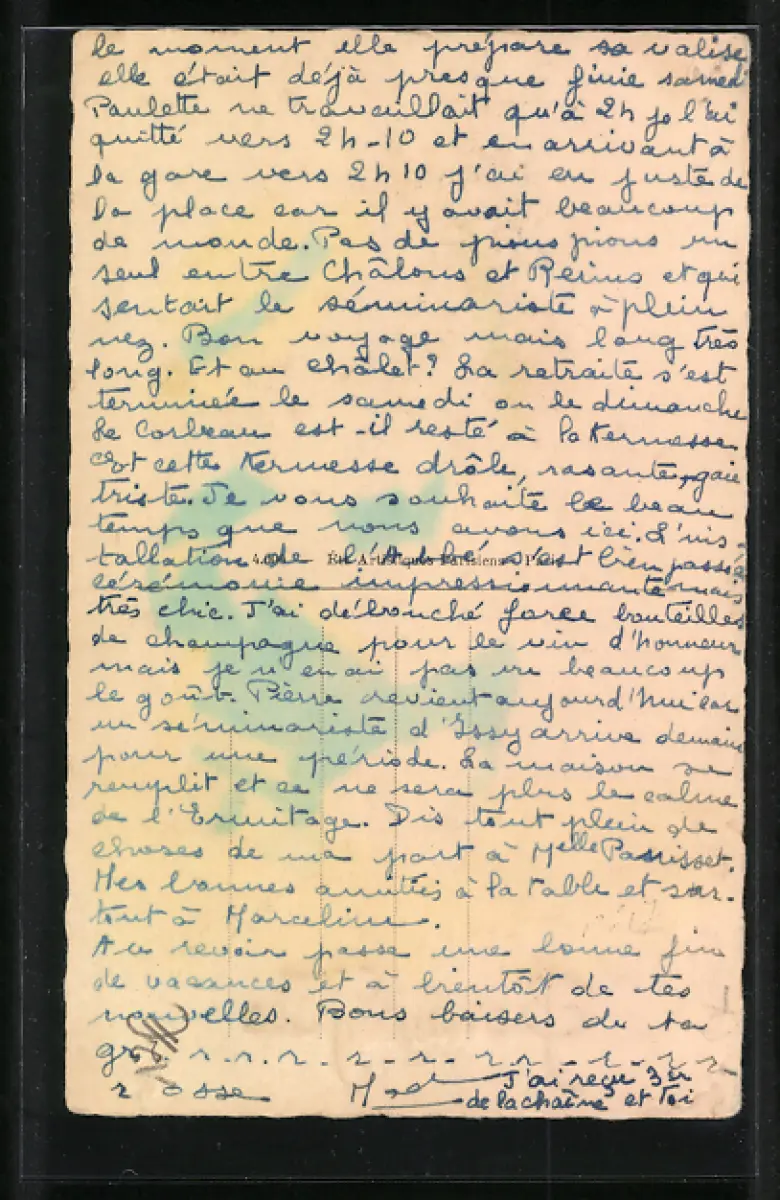 le moment elle prépare sa valise
elle était déjà presque finie samedi
Paulette ne travaillait qu'à 2h je l'ai
quitté vers 2h-10 et en arrivant à
la gare vers 2h10 j'ai eu juste de
la place car il y avait beaucoup
de monde. Pas de pious pious un
seul entre Châlons et Reims et qui
sentait le séminariste à plein
nez. Bon voyage mais long très
long. Et au châlet? La retraite s'est
terminée le samedi ou le dimanche
Le Corbeau est-il resté à la Kermesse
Et cette Kermesse drôle, rasante, gaie
triste. Je vous souhaite le beau
temps que nous avons ici. L'ins-
tallation de l'Abbé s'est bien passée
4.0 Ed. Artistiques Parisiens - Paris
cérémonie impressionnante mais
très chic. J'ai débouché force bouteilles
de champagne pour le vin d'honneur
mais je n'en ai pas vu beaucoup
le goût. Pierre revient aujourd'hui car
un séminariste d'Issy arrive demain
pour une période. La maison se
remplit et ce ne sera plus le calme
de l'Ermitage. Dis tout plein de
choses de ma part à Melle Parisset.
Mes bonnes amitiés à la table et sur-
tout à Marceline.
Au revoir passe une bonne fin
de vacances et à bientôt de tes
nouvelles. Bons baisers de ta
gr r.r.r. r - r - r r - r - r r -
r osse
J'ai reçu 3 
de la chaîne et toi